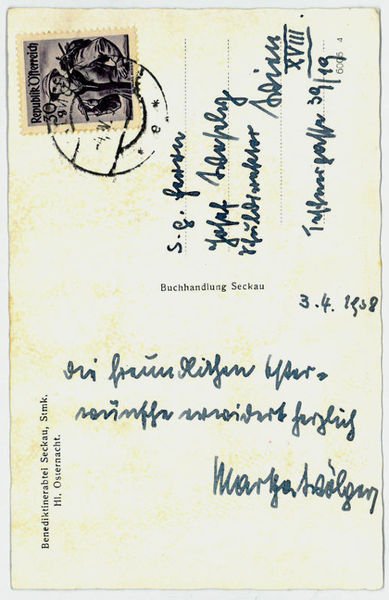 Republik Österreich
30
S. g. Herrn
Josef
Schuldirektor
Wien
XVIII.
39/19
6005 4
Buchhandlung Seckau
3. 4. 1958
Die freundlichen Oster-
wünsche erwidert herzlich
Martha Wölger
Benediktinerabtei Seckau, Stmk.
Hl. Osternacht.